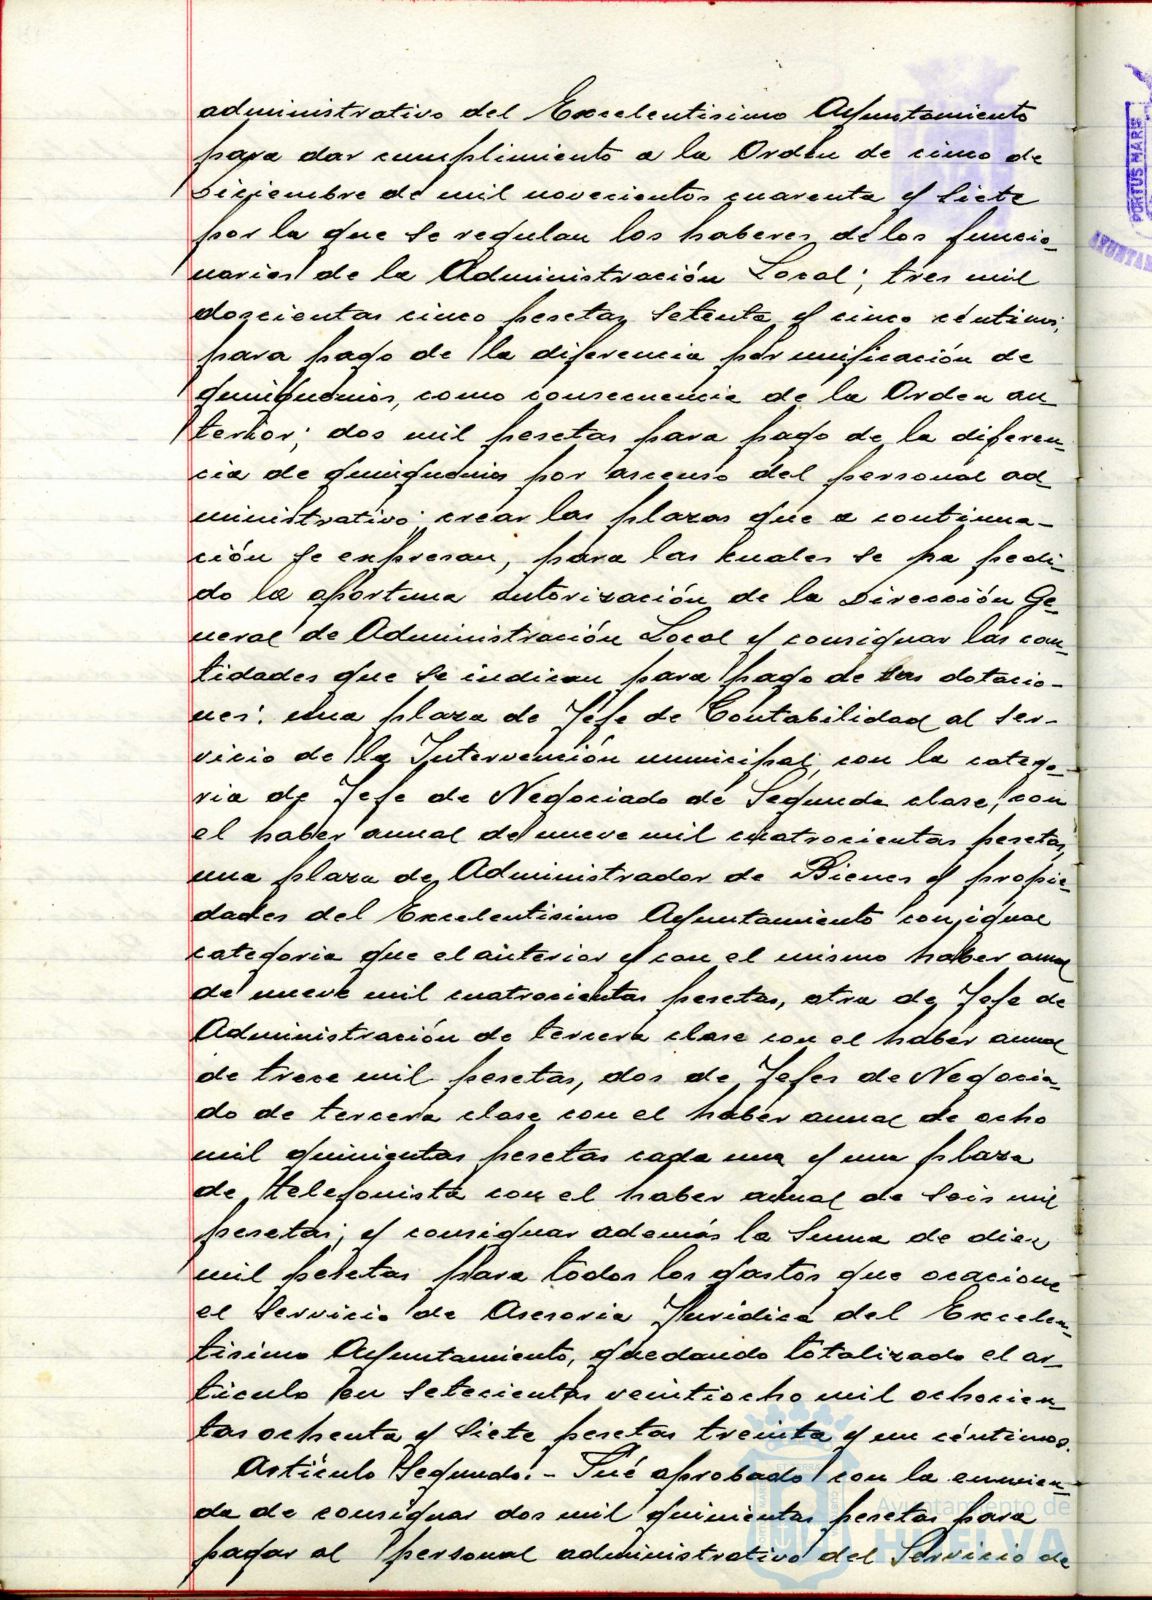 administrativo del Excelentisimo Ayuntamiento
para dar cumplimiento a la Orden de cinco de
Diciembre de mil novecientos cuarenta y siete
por la que se regulan los haberes de los funcio-
narios de la Administración Local; tres mil
doscientas cinco pesetas setenta y cinco céntimos,
para pago de la diferencia por unificación de
quinquenios, como consecuencia de la Orden an-
terior; dos mil pesetas para pago de la diferen-
cia de quinquenios por ascenso del personal ad-
ministrativo; crear las plazas que a continua-
ción se expresan, para las cuales se ha pedi-
do la oportuna autorización de la Dirección Ge-
neral de Administración Local y consignar las can-
tidades que se indican para pago de las dotacio-
nes: una plaza de Jefe de Contabilidad al ser-
vicio de la Intervención municipal, con la catego-
ria de Jefe de Negociado de Segunda clase, con
el haber anual de nueve mil cuatrocientas pesetas,
una plaza de Administrador de Bienes y propie-
dades del Excelentisimo Ayuntamiento con igual
categoria que el anterior y con el mismo haber anual
de nueve mil cuatrocientas pesetas, otra de Jefe de
Administración de tercera clase con el haber anual
de trece mil pesetas, dos de Jefes de Negocia-
do de tercera clase con el haber anual de ocho
mil quinientas pesetas cada una y una plaza
de telefonista con el haber anual de seis mil
pesetas; y consignar además la suma de diez
mil pesetas para todos los gastos que ocacione
el Servicio de Asesoria Juridica del Excelen-
tisimo Ayuntamiento, quedando totalizado el ar-
ticulo en setecientas veintiocho mil ochocien-
tas ochenta y siete pesetas treinta y un céntimos.
Artículo Segundo.- Fué aprobado con la enmien-
da de consignar dos mil quinientas pesetas para
pagar al personal administrativo del Servicio de
PORTUS MARIS
AYUNTAM
Ayuntamiento de
HUELVA